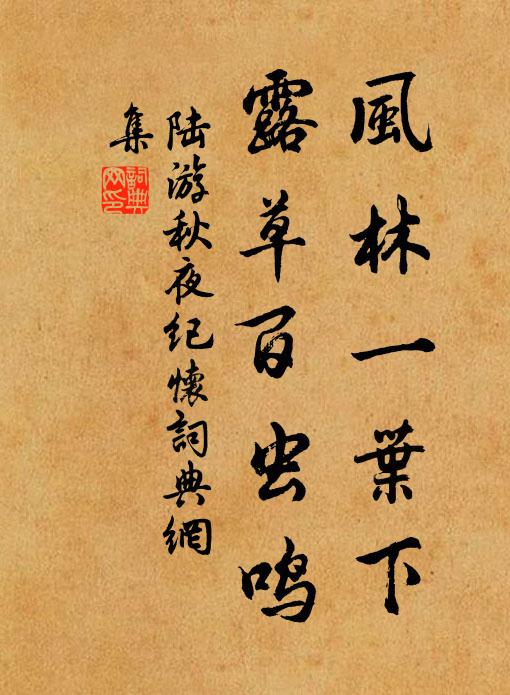 風林一葉下
露草百虫鳴
陆游秋夜纪懷詞典網
集
詞典
网印